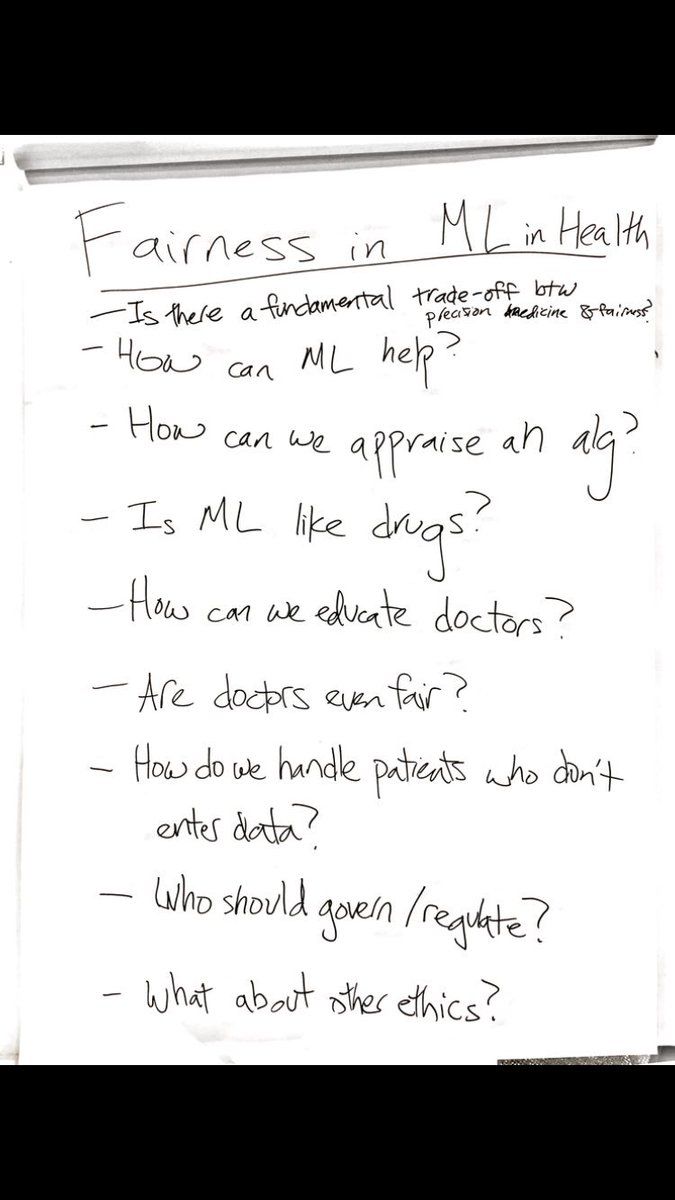 Fairness in ML in Health
- Is there a fundamental trade-off btw
precision medicine & fairness?
- How can ML help?
- How can we appraise an alg?
- Is ML like drugs?
- How can we educate doctors?
- Are doctors even fair?
- How do we handle patients who don't
enter data?
- Who should govern/regulate?
- What about other ethics?